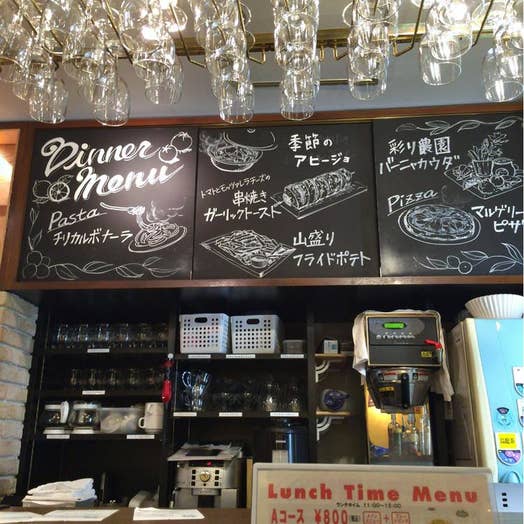 Dinner
Menu
Pasta
チリカルボナーラ
季節の
アヒージョ
トマトとモッツァレラチーズの
串焼き
ガーリックトースト
山盛り
フライドポテト
彩り農園
バーニャカウダ
Pizza
マルゲリー
ピザ
Lunch Time Menu
ランチタイム 11:00~15:00
Aコース ¥800